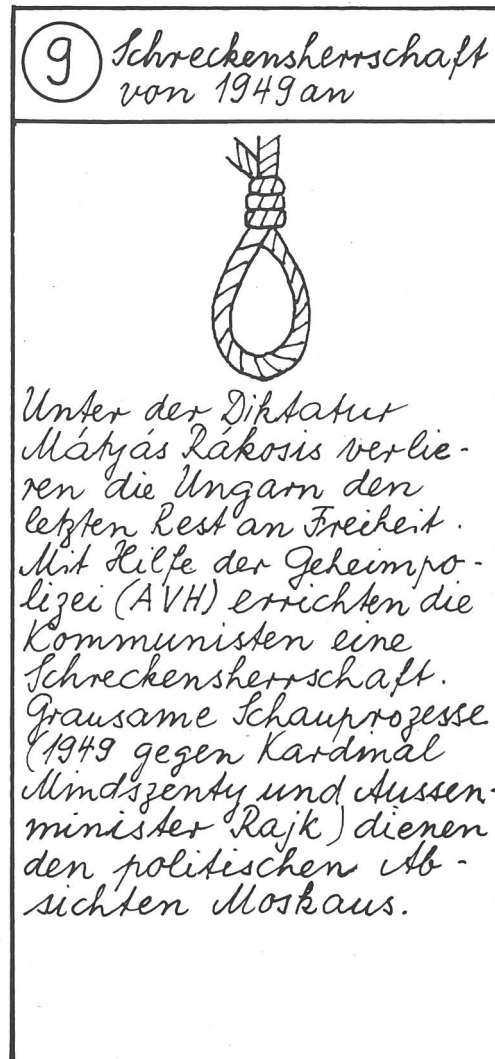 9 Schreckensherrschaft
von 1949 an
Unter der Diktatur
Mátyás Rákosis verlie-
ren die Ungarn den
letzten Rest an Freiheit.
Mit Hilfe der Geheimpo-
lizei (AVH) errichten die
Kommunisten eine
Schreckensherrschaft.
Grausame Schauprozesse
(1949 gegen Kardinal
Mindszenty und Aussen-
minister Rajk) dienen
den politischen Ab-
sichten Moskaus.